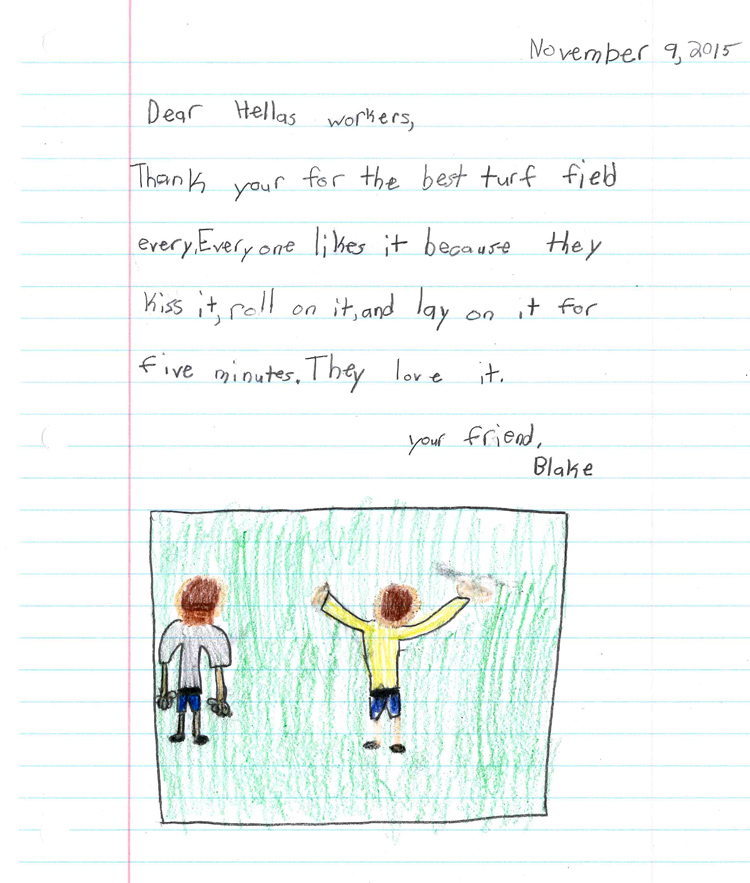 November 9, 2015
Dear Hellas workers,
Thank your for the best turf field
every. Everyone likes it because they
kiss it, roll on it, and lay on it for
five minutes. They love it.
your friend,
Blake